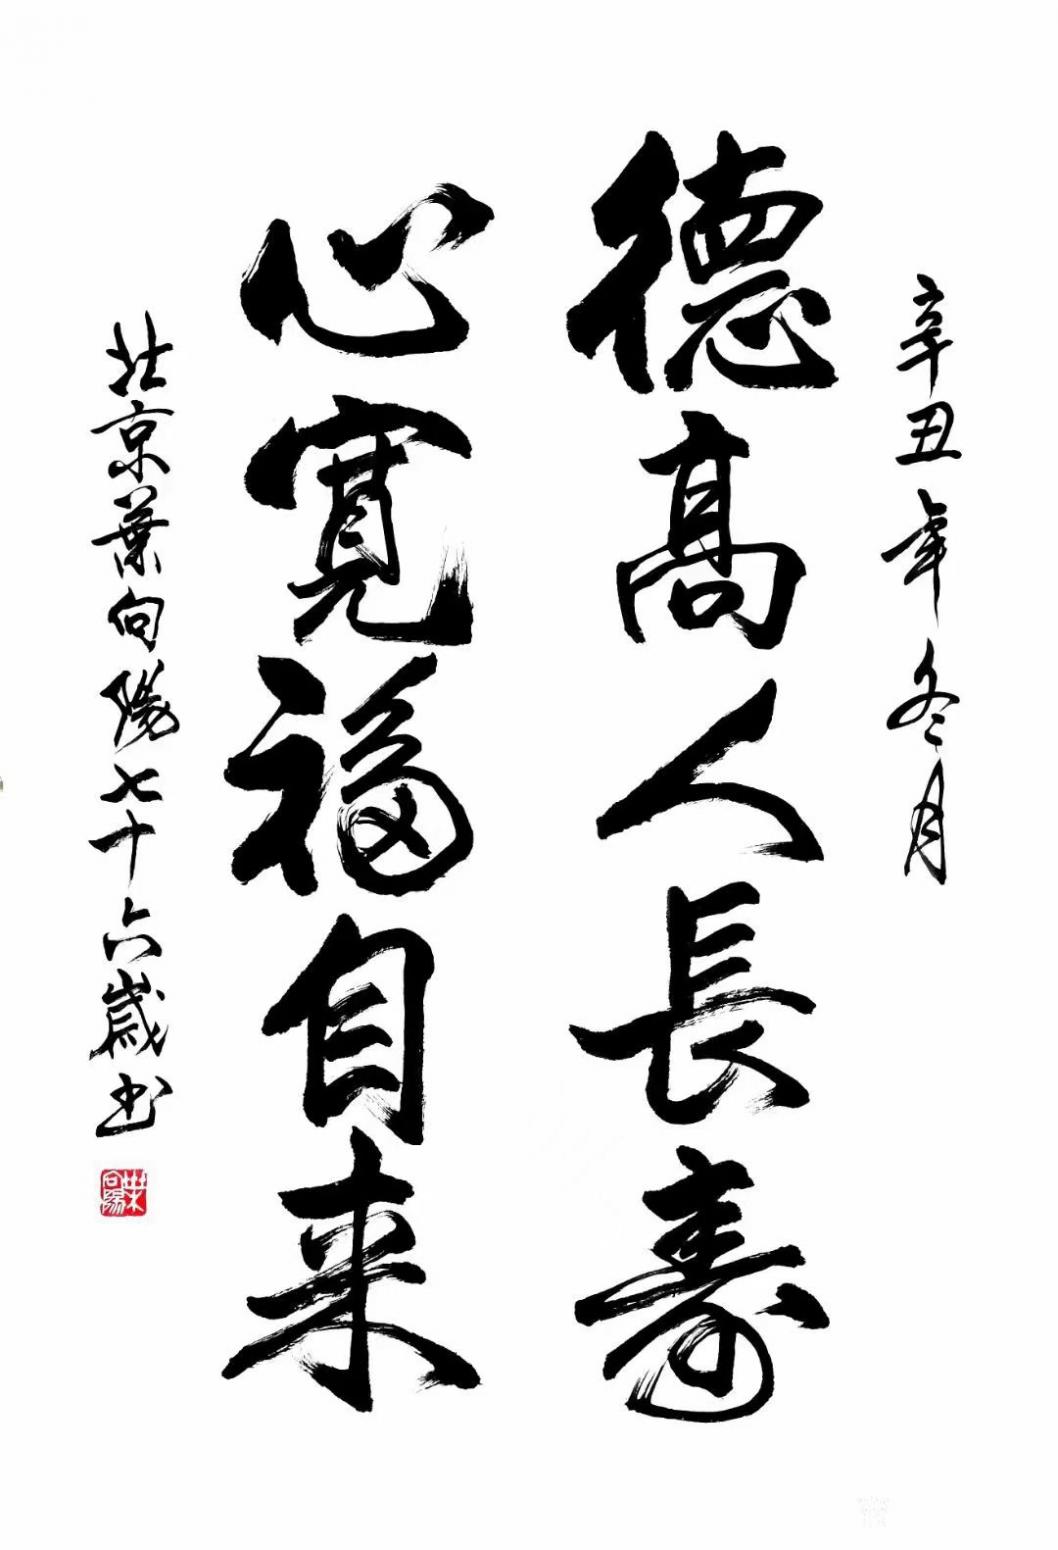 辛丑年冬月
德高人長寿
心寬福自来
北京葉向陽七十六歲书
葉向陽